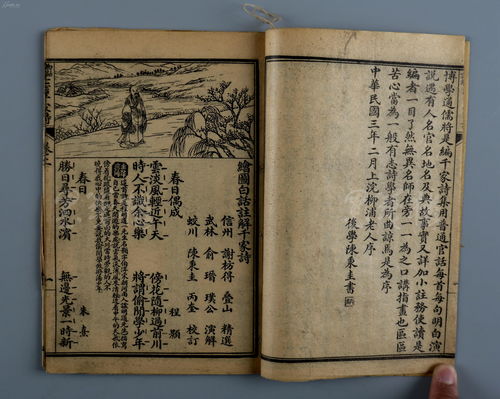 博學通儒將是編千家詩集用普通官話每首每句明白演
說遇有人名官名地名及典故事實又詳加小註務使讀是
編者一目了然無異名師在旁一一為之口講指畫也區區
苦心當為一般有志詩學者所曲諒焉是為序
中華民國三年二月上浣柳浦老人序
後學陳秉圭書
繪圖白話註解千家詩
信州 謝枋得 疊山 精選
武林 俞瑨 璞公 演解
蛟川 陳秉圭 丙奎 校訂
春日偶成 程顥
雲淡風輕近午天 傍花隨柳過前川
時人不識余心樂 將謂偷閒學少年
春日 朱熹
勝日尋芳泗水濱 無邊光景一時新